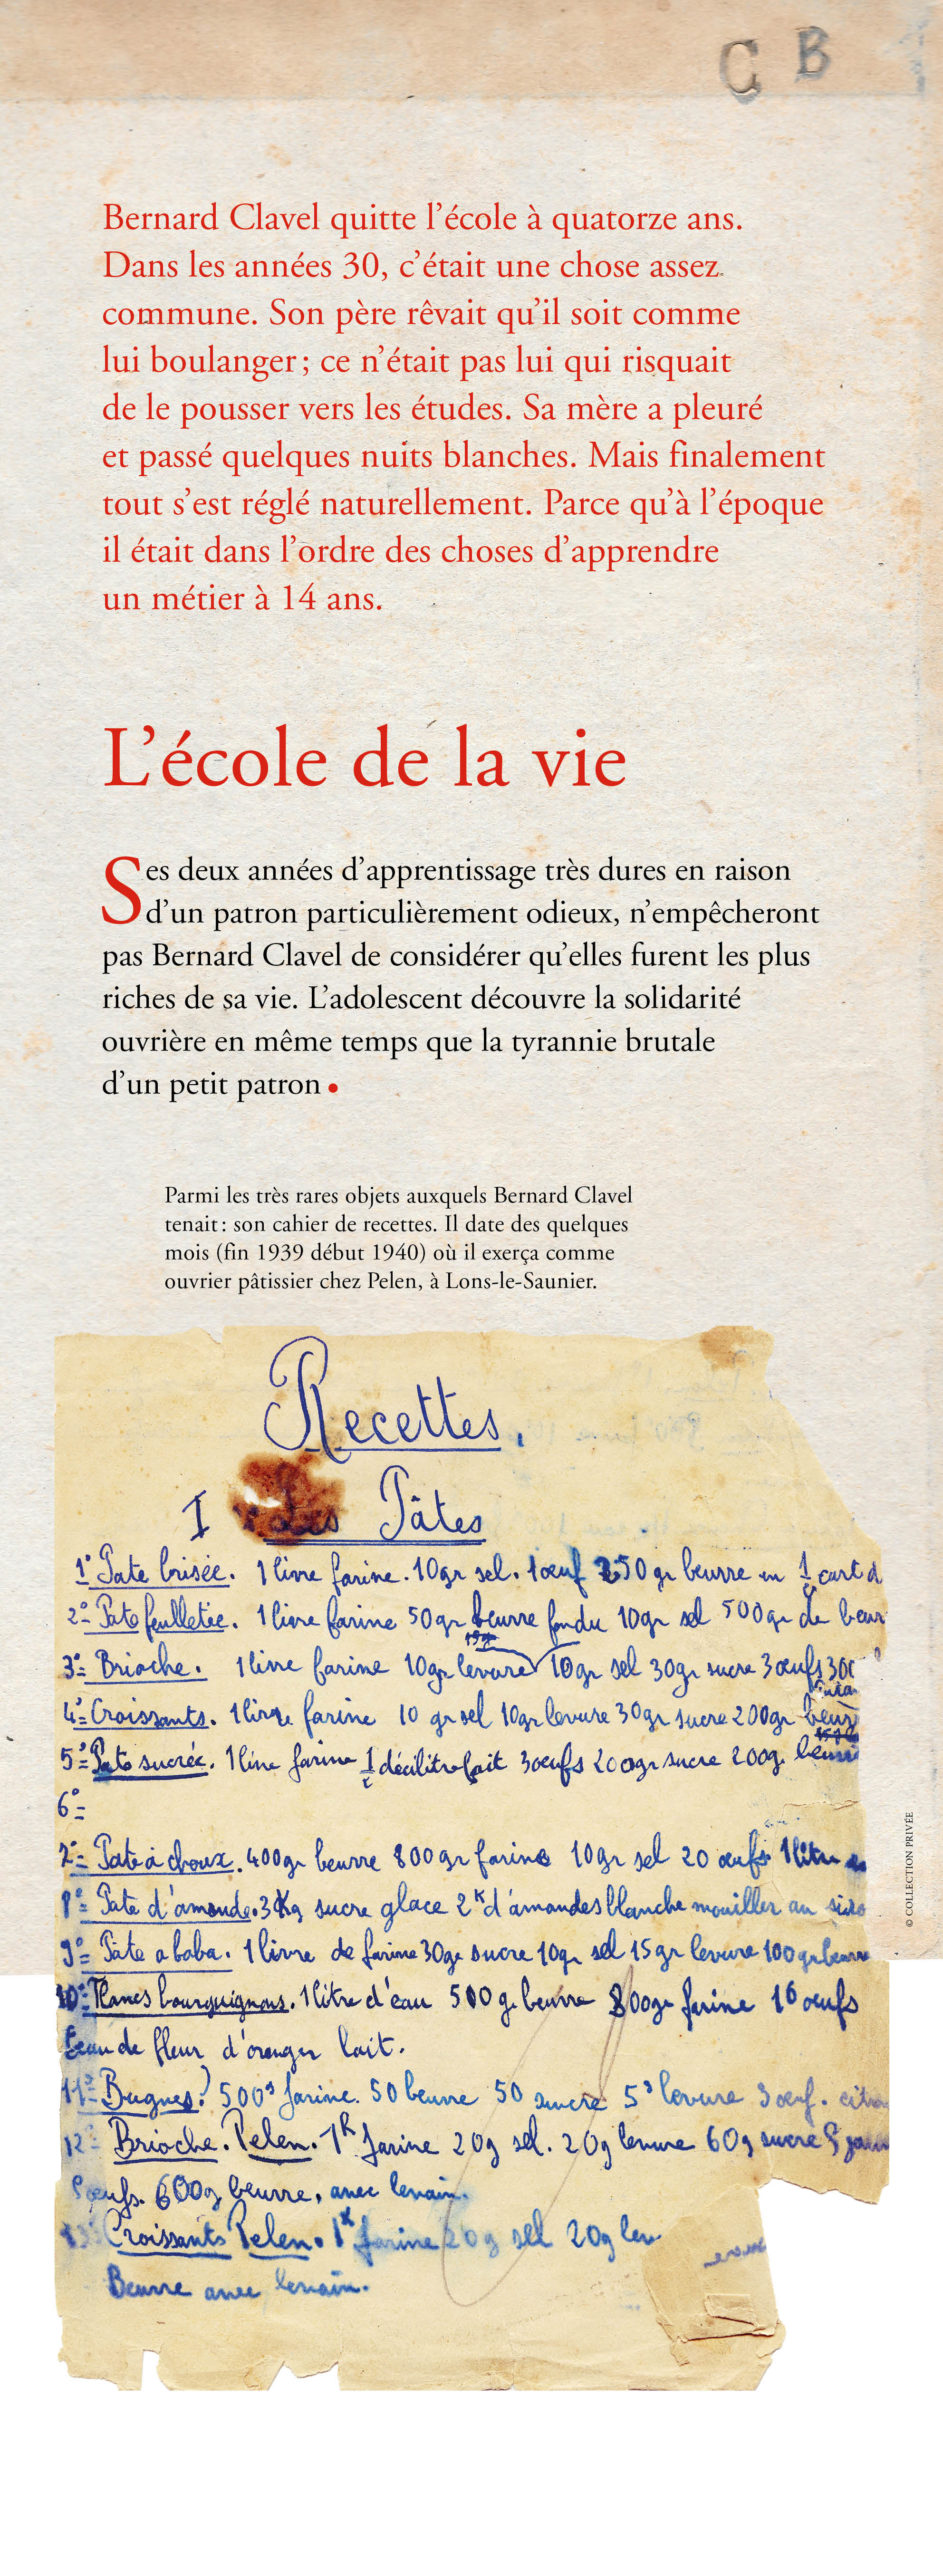 C B
Bernard Clavel quitte l’école à quatorze ans.
Dans les années 30, c’était une chose assez
commune. Son père rêvait qu’il soit comme
lui boulanger ; ce n’était pas lui qui risquait
de le pousser vers les études. Sa mère a pleuré
et passé quelques nuits blanches. Mais finalement
tout s’est réglé naturellement. Parce qu’à l’époque
il était dans l’ordre des choses d’apprendre
un métier à 14 ans.
L’école de la vie
Ses deux années d’apprentissage très dures en raison
d’un patron particulièrement odieux, n’empêcheront
pas Bernard Clavel de considérer qu’elles furent les plus
riches de sa vie. L’adolescent découvre la solidarité
ouvrière en même temps que la tyrannie brutale
d’un petit patron •
Parmi les très rares objets auxquels Bernard Clavel
tenait : son cahier de recettes. Il date des quelques
mois (fin 1939 début 1940) où il exerça comme
ouvrier pâtissier chez Pelen, à Lons-le-Saunier.
Recettes.
I Les Pâtes
1° Pate brisée. 1 livre farine. 10gr sel. 1 œuf 250 gr beurre un 1/2 cart d
2° Pate feulletée. 1 livre farine 50gr beurre fondu 10gr sel 500gr de beur
3° Brioche. 1 livre farine 10gr levure 10gr sel 30gr sucre 3 œufs 300
4° Croissants. 1 livre farine 10 gr sel 10gr levure 30gr sucre 200gr beur
5° Pate sucrée. 1 livre farine 1 décilitre lait 3 œufs 200gr sucre 200g. beurre
6° =
Pate à choux. 400gr beurre 800gr farine 10gr sel 20 œufs 1 litre
Pate d'amande. 3 Kg sucre glace 2K d'amandes blanche mouiller au
9° Pate a baba. 1 livre de farine 30gr sucre 10gr sel 15gr levure 100gr beurre
10° Flancs bourguignons. 1 litre d'eau 500 g beurre 800gr farine 16 œufs
Eau de fleur d'oranger lait.
11° Bugnes? 500g farine. 50 beurre 50 sucre 5g levure 3 œuf.
12° Brioche. Pelen. 1K farine 20g sel. 20g levure 60g sucre
œufs. 600g beurre, avec levain.
Croissants Pelen. 1K farine 20g sel 20g lev
Beurre avec levain.
© COLLECTION PRIVÉE